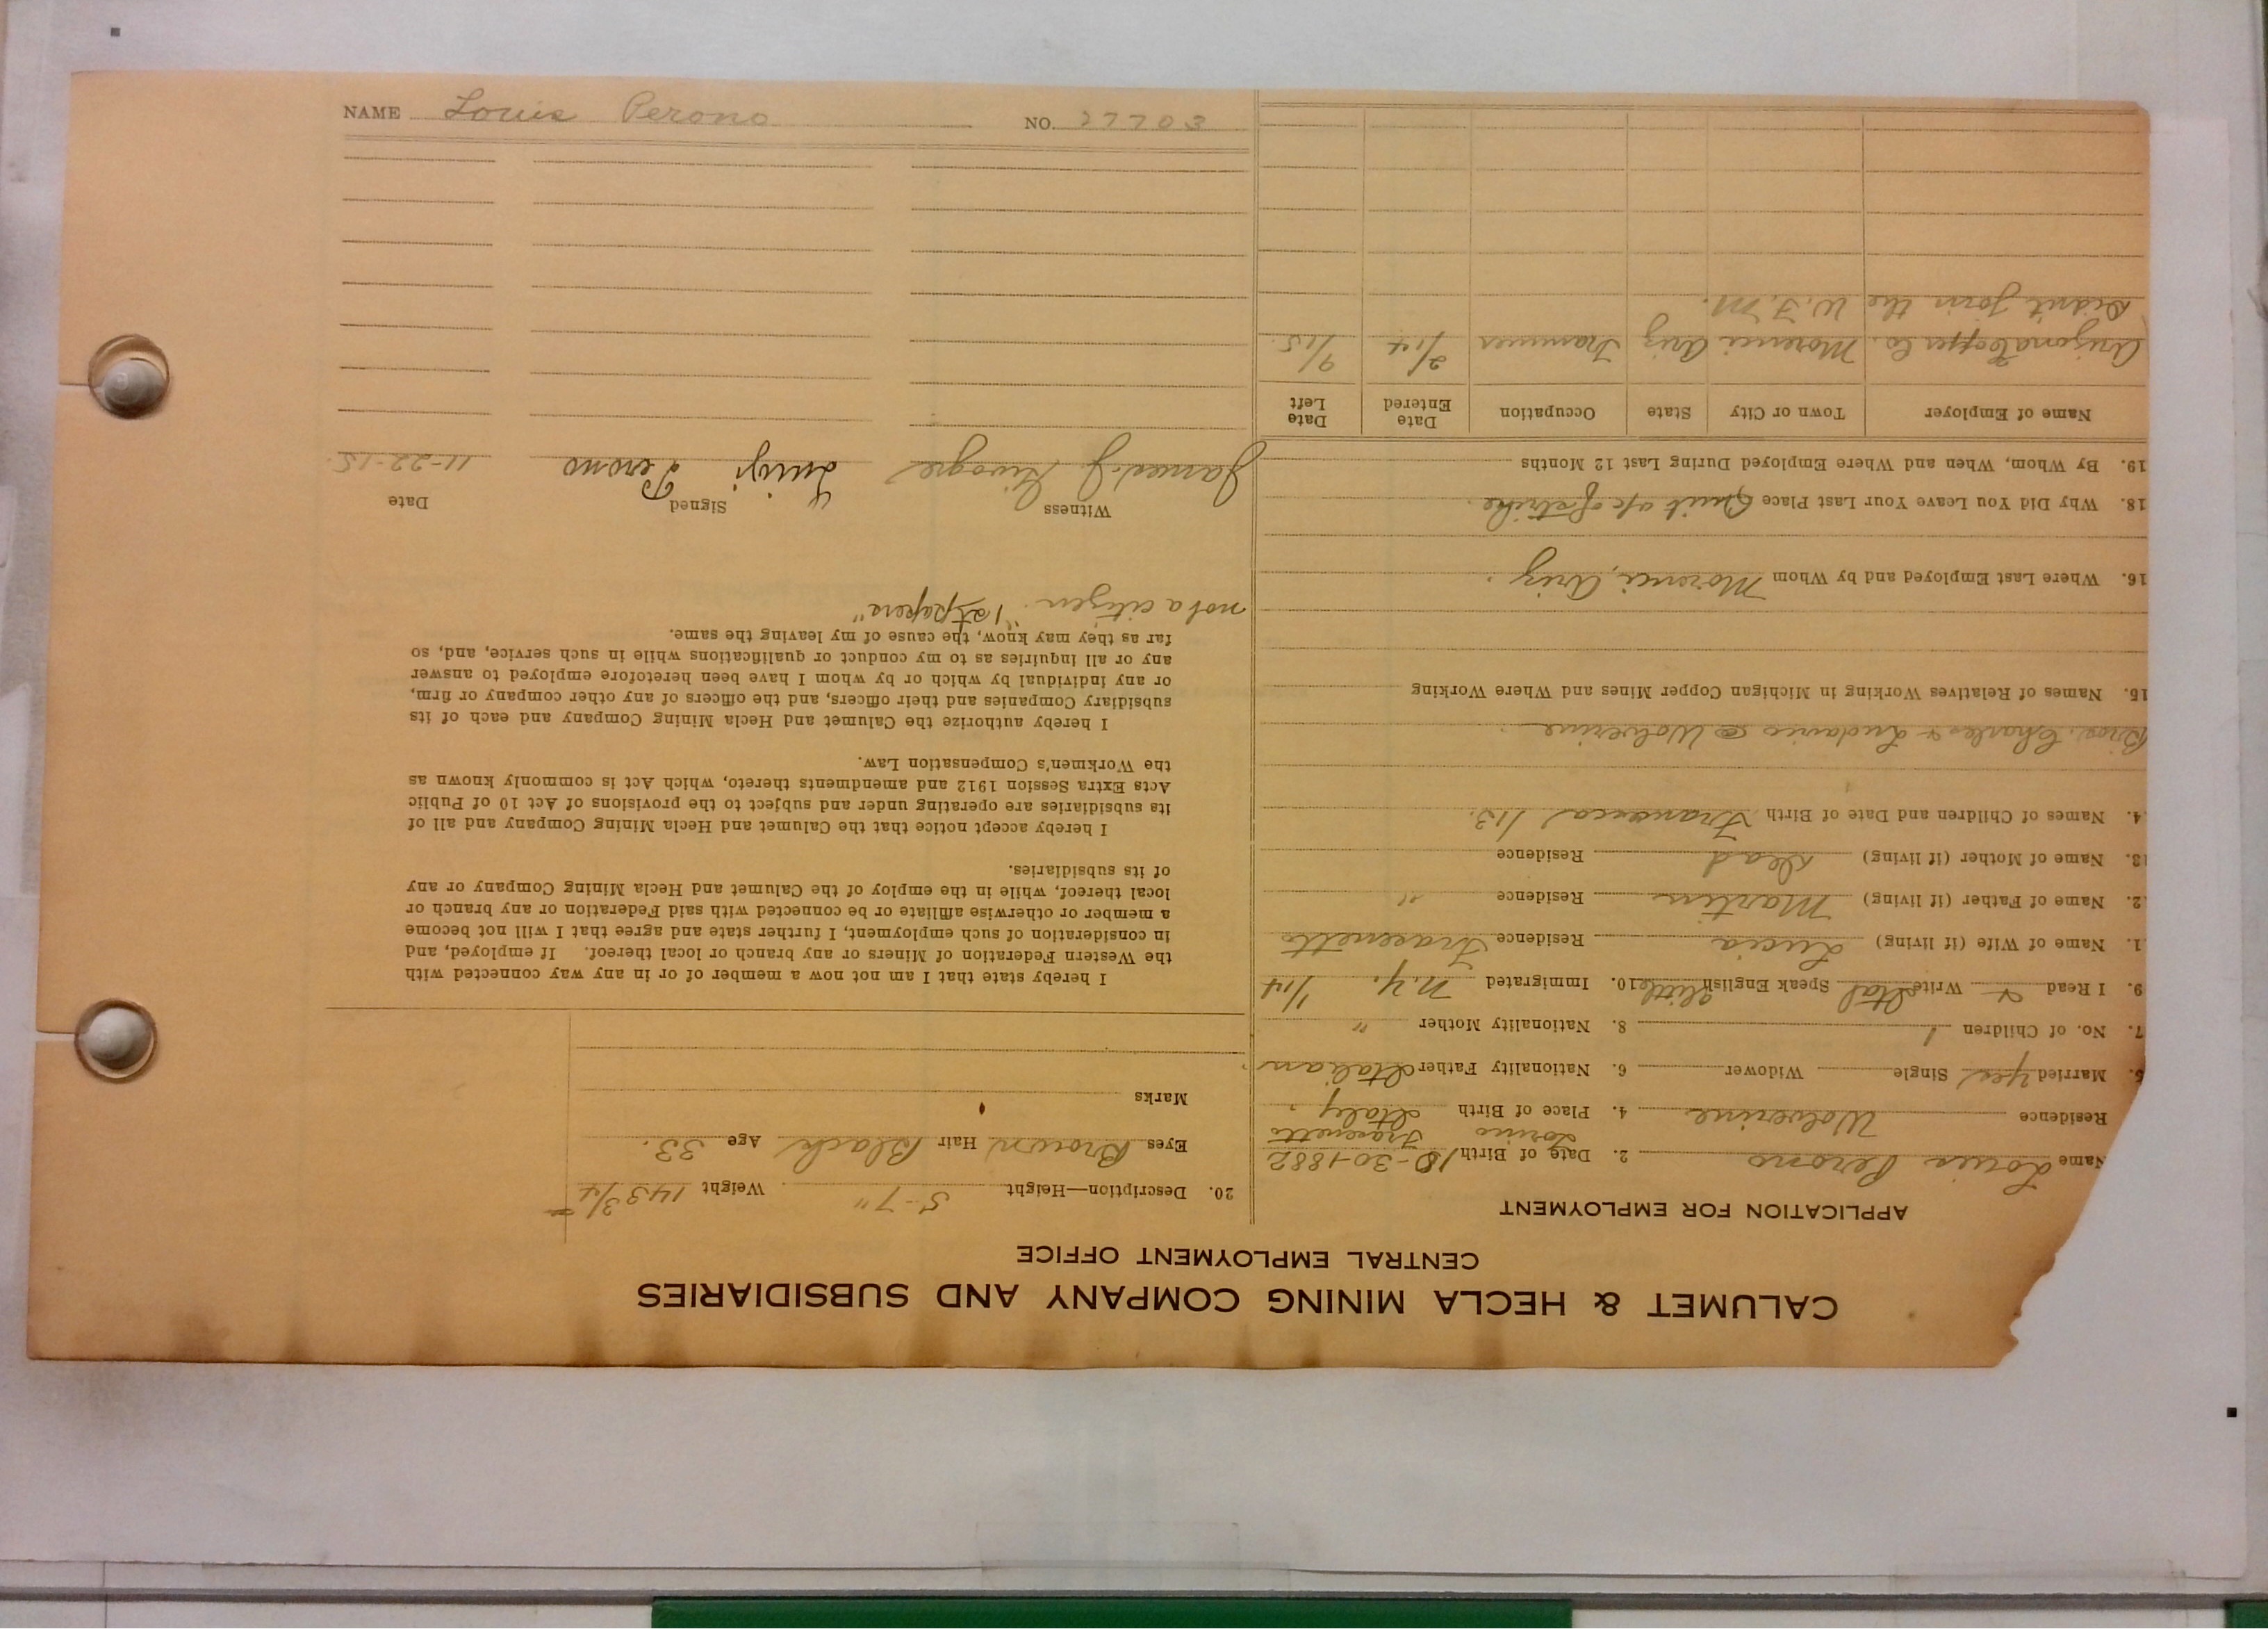 CALUMET & HECLA MINING COMPANY AND SUBSIDIARIES
CENTRAL EMPLOYMENT OFFICE
APPLICATION FOR EMPLOYMENT
Name Louis Perono 2. Date of Birth 10-30-1882
Residence Wolverine 4. Place of Birth Torino Italy.
5. Married Yes Single Widower 6. Nationality Father Italian
7. No. of Children 1 8. Nationality Mother "
9. I Read & Write Ital Speak English little 10. Immigrated N.Y. 1/14
1. Name of Wife (if living) Lucia Residence
2. Name of Father (if living) Martin Residence "
13. Name of Mother (if living) Dead Residence
4. Names of Children and Date of Birth Francesca 1/13.
Bros. Charles & Ludavico @ Wolverine
15. Names of Relatives Working in Michigan Copper Mines and Where Working
16. Where Last Employed and by Whom Morenci, Ariz.
18. Why Did You Leave Your Last Place Quit a/c of strike.
19. By Whom, When and Where Employed During Last 12 Months
Name of Employer Town or City State Occupation Date Entered Date Left
Arizona Copper Co. Morenci Ariz Trammer 2/14 9/15.
Didn't join the W.F.M.
20. Description—Height 5-7" Weight 143 3/4
Eyes Brown Hair Black Age 33.
Marks
I hereby state that I am not now a member of or in any way connected with
the Western Federation of Miners or any branch or local thereof. If employed, and
in consideration of such employment, I further state and agree that I will not become
a member or otherwise affiliate or be connected with said Federation or any branch or
local thereof, while in the employ of the Calumet and Hecla Mining Company or any
of its subsidiaries.
I hereby accept notice that the Calumet and Hecla Mining Company and all of
its subsidiaries are operating under and subject to the provisions of Act 10 of Public
Acts Extra Session 1912 and amendments thereto, which Act is commonly known as
the Workmen's Compensation Law.
I hereby authorize the Calumet and Hecla Mining Company and each of its
subsidiary Companies and their officers, and the officers of any other company or firm,
or any individual by which or by whom I have been heretofore employed to answer
any or all inquiries as to my conduct or qualifications while in such service, and, so
far as they may know, the cause of my leaving the same.
not a citizen. "1st papers"
Witness Signed Date
James J. Luigi Perono 11-22-15.
NAME Louis Perono NO. 27703